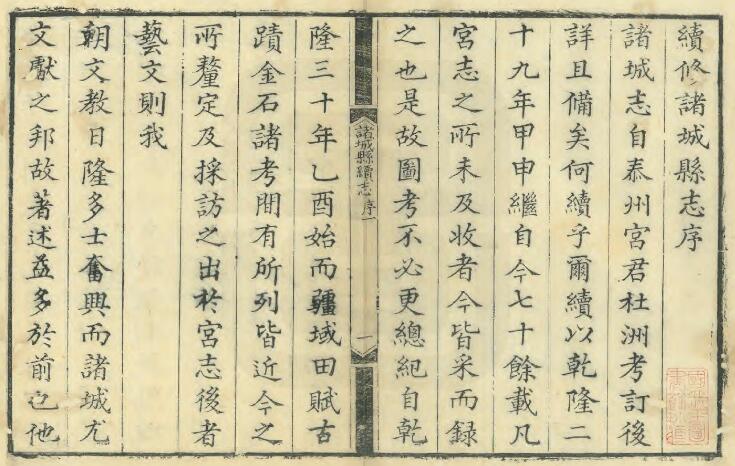 續修諸城縣志序
諸城志自泰州宮君杜洲考訂後
詳且備矣何續乎爾續以乾隆二
十九年甲申繼自今七十餘載凡
宮志之所未及收者今皆采而錄
之也是故圖考不必更總紀自乾
諸城縣續志 序一 一
隆三十年乙酉始而疆域田賦古
蹟金石諸考間有所列皆近今之
所釐定及採訪之出於宮志後者
藝文則我
朝文教日隆多士奮興而諸城尤
文獻之邦故著述益多於前也他